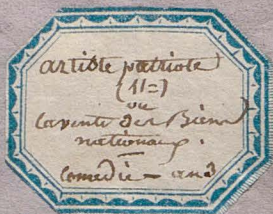 artiste patriote
(1)=)
ou
la vente des Biens
nationaux.
Comedie - an 3